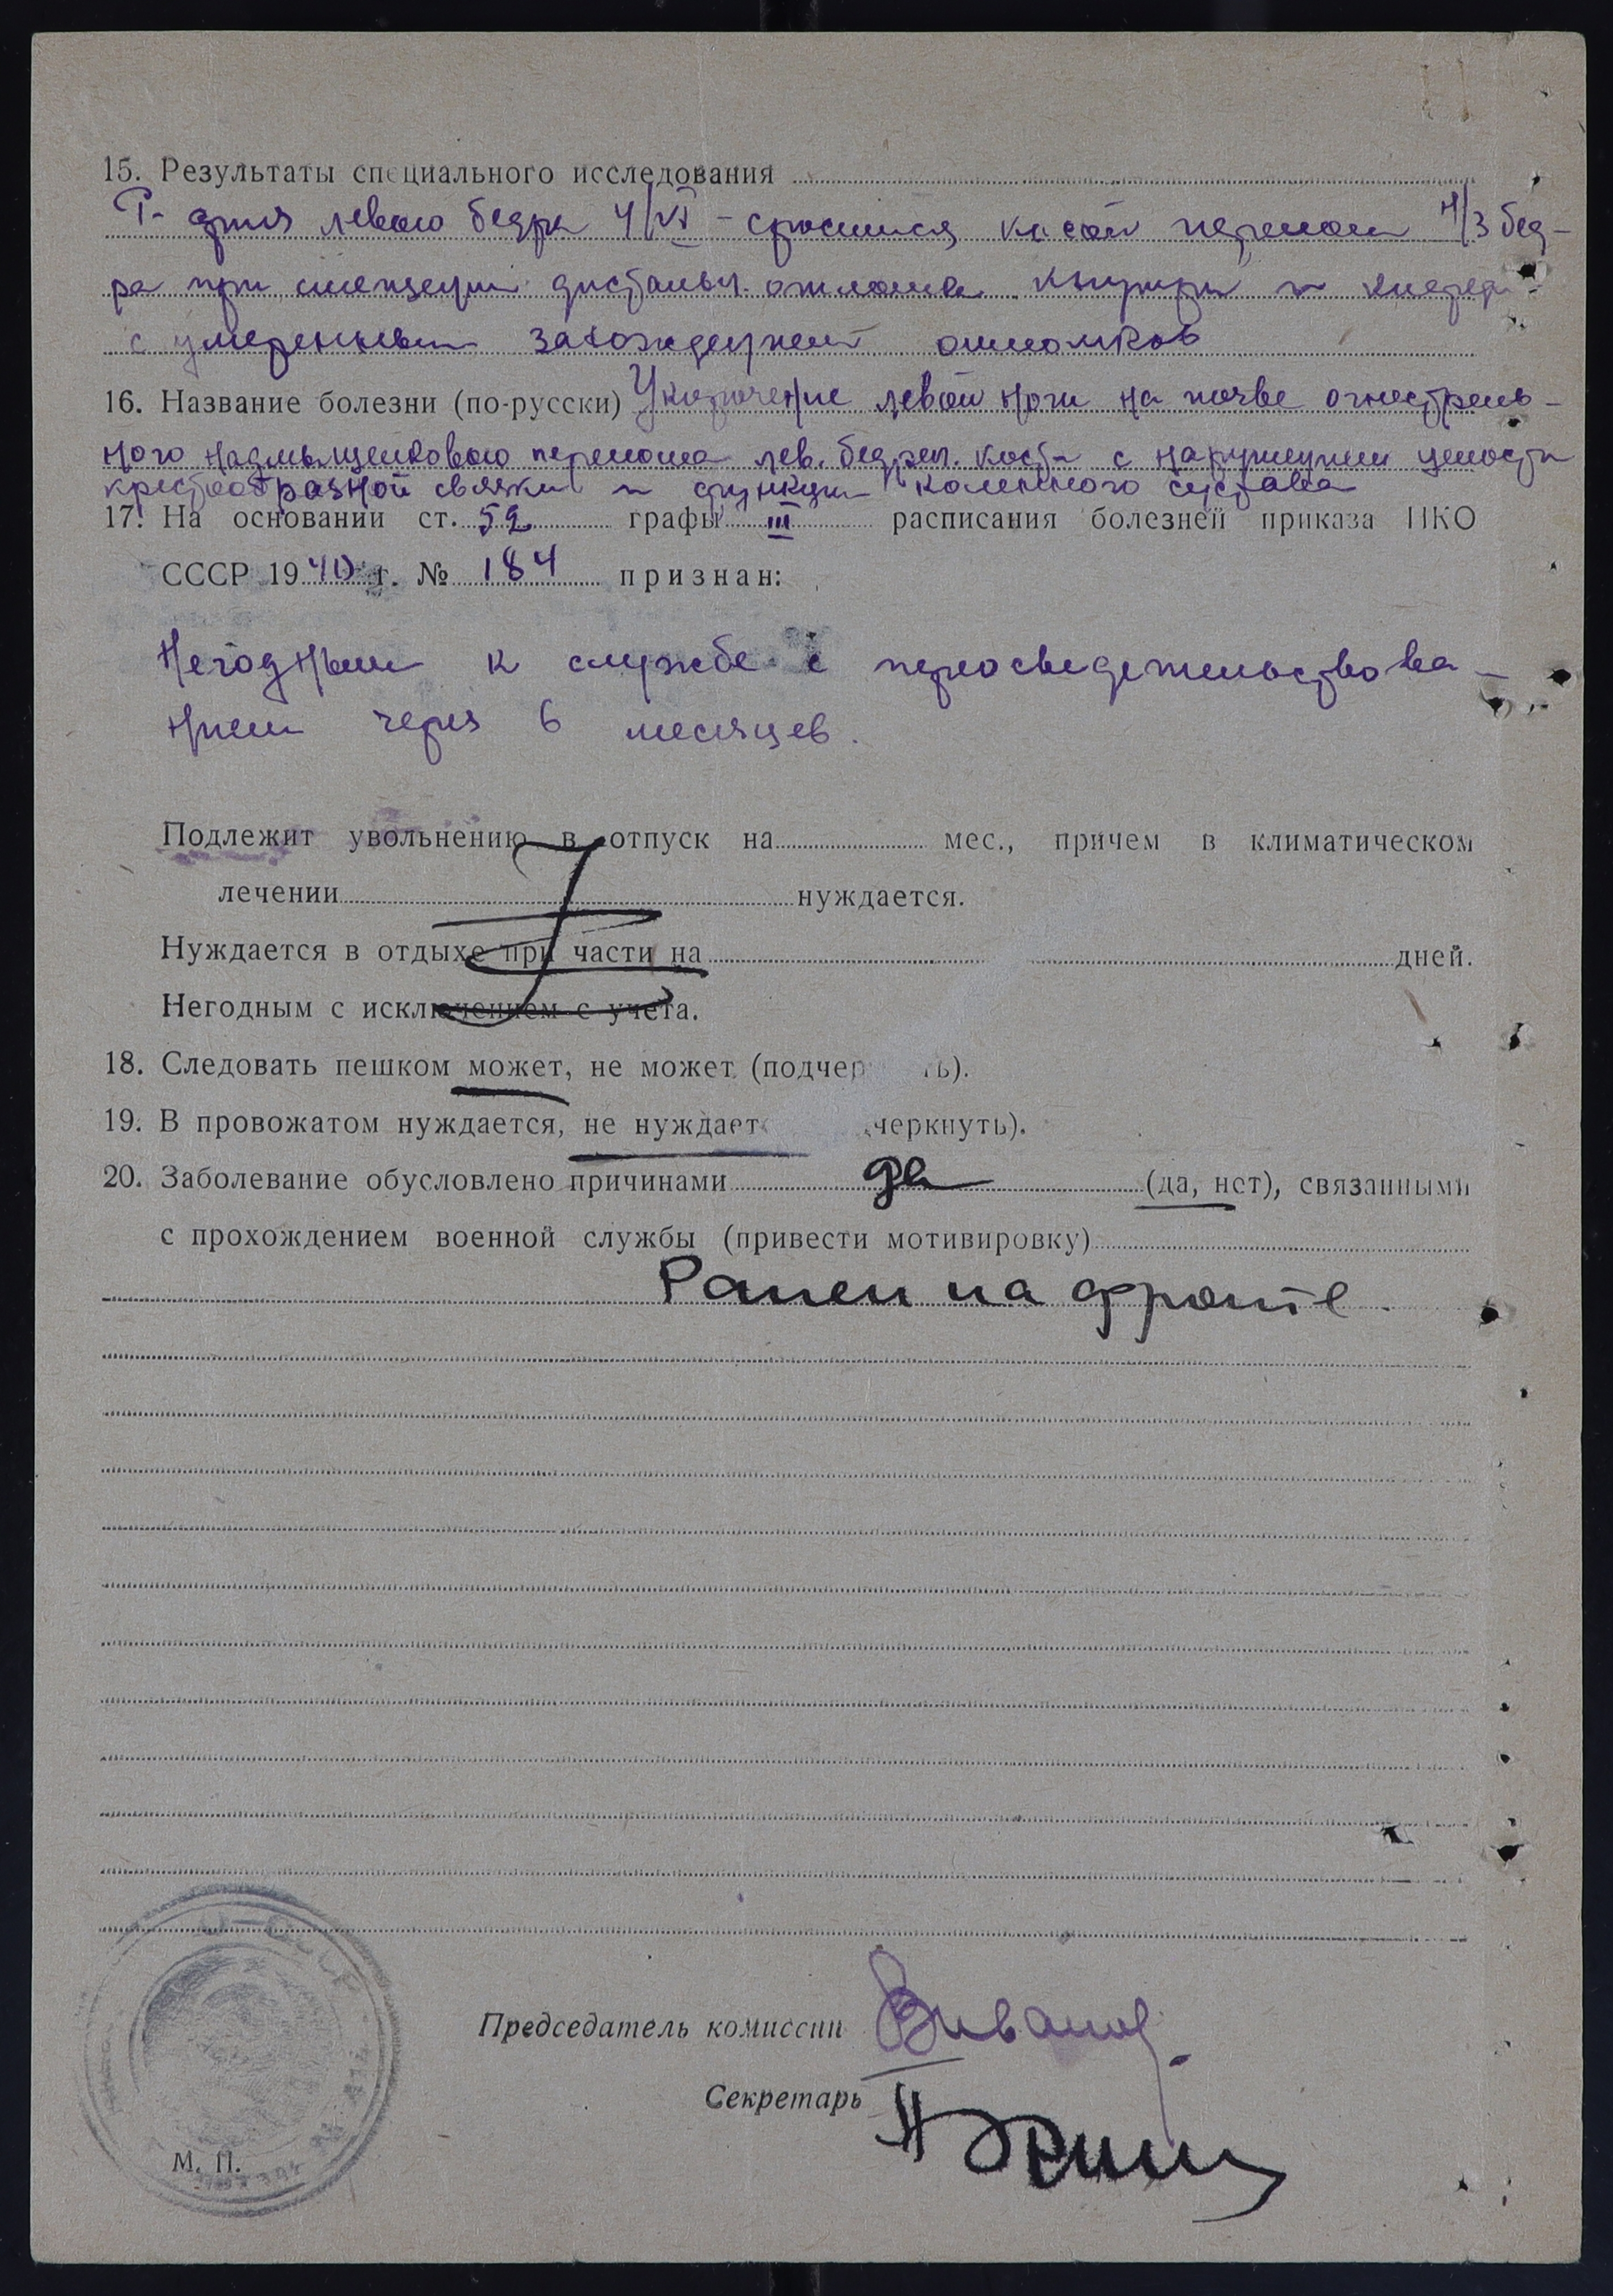 15. Результаты специального исследования
Р-фия левого бедра 4/VI - сросшийся косой перелом н/3 бед-
ра при смещении дистальн. отломка кнутри и кпереди
с умеренным захождением отломков
16. Название болезни (по-русски) Укорочение левой ноги на почве огнестрель-
ного надмыщелкового перелома лев. бедрен. кости с нарушением целости
крестообразной связки и функции коленного сустава
17. На основании ст. 52 графы III расписания болезней приказа НКО
СССР 1940 г. № 184 признан:
Негодным к службе с переосведетельствова-
нием через 6 месяцев.
Подлежит увольнению в отпуск на мес., причем в климатическом
лечении нуждается.
Нуждается в отдыхе при части на дней.
Негодным с исключением с учета.
18. Следовать пешком может, не может (подчер ть).
19. В провожатом нуждается, не нуждаетс черкнуть).
20. Заболевание обусловлено причинами да (да, нет), связанными
с прохождением военной службы (привести мотивировку)
Ранен на фронте.
Председатель комиссии
Секретарь
М. П.